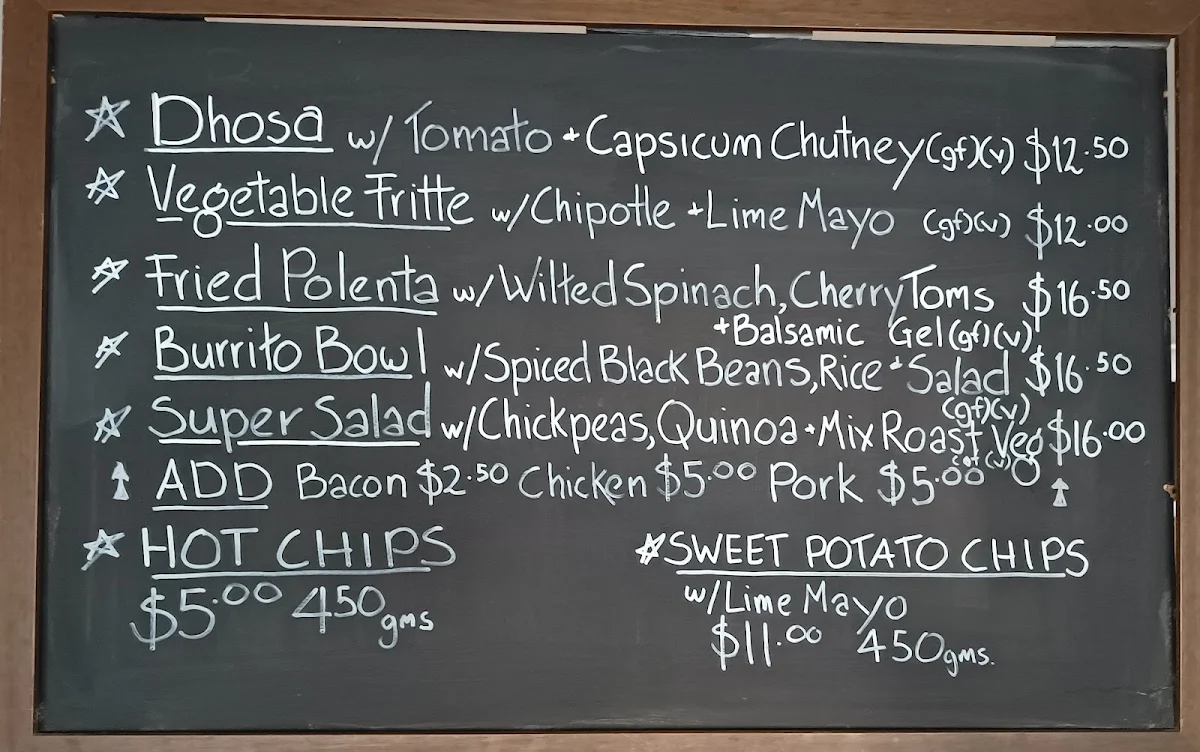 ☆ Dhosa w/ Tomato + Capsicum Chutney (gf)(v) $12.50
☆ Vegetable Fritte w/ Chipotle + Lime Mayo (gf)(v) $12.00
☆ Fried Polenta w/ Wilted Spinach, Cherry Toms $16.50
+ Balsamic Gel (gf)(v)
☆ Burrito Bowl w/ Spiced Black Beans, Rice + Salad $16.50
(gf)(v)
☆ Super Salad w/ Chickpeas, Quinoa + Mix Roast Veg $16.00
(gf)(v)
↑ ADD Bacon $2.50 Chicken $5.00 Pork $5.00 ↑
☆ HOT CHIPS
$5.00 450gms
☆ SWEET POTATO CHIPS
w/ Lime Mayo
$11.00 450gms.